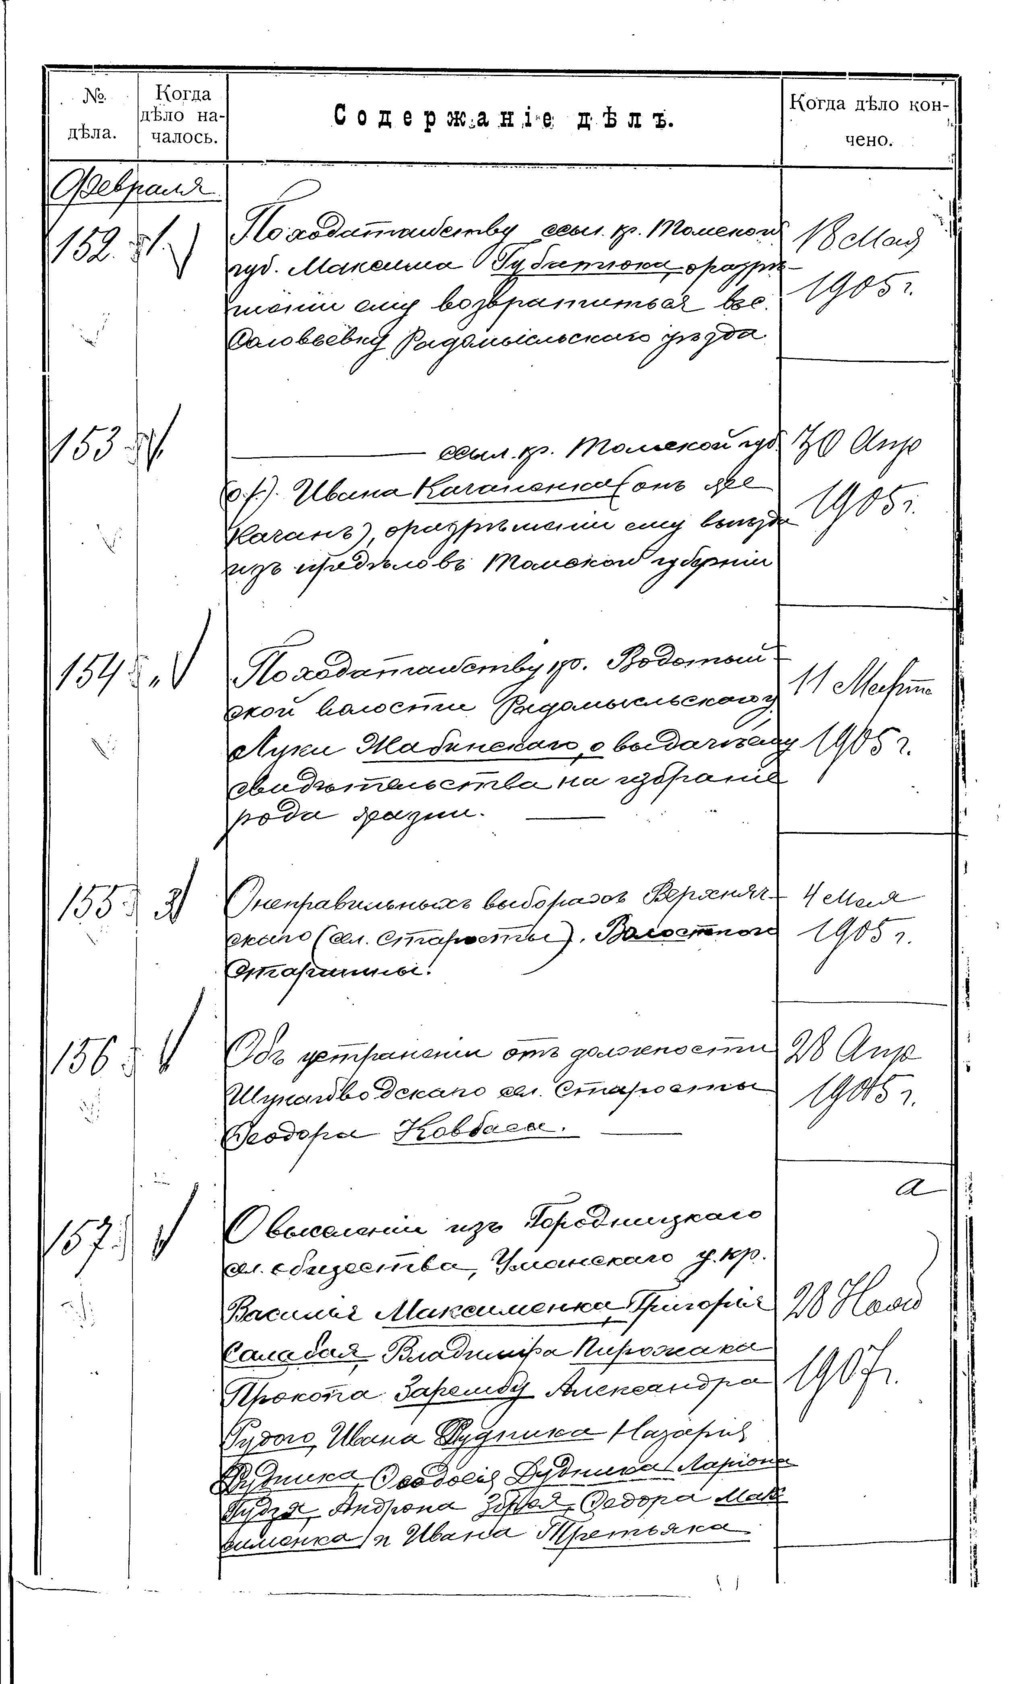 № дѣла.
Когда дѣло началось.
Содержаніе дѣлъ.
Когда дѣло кончено.
Февраля
152. 1.
По ходатайству ссыл. кр. Томской
губ. Максима Губатюка, о разрѣ-
шеніи ему возвратиться въ с.
Соловьевку Радомысльскаго уѣзда
18 Мая
1905 г.
153
ссыл. кр. Томской губ.
Ивана Качаненка (онъ же
Качанъ), о разрѣшеніи ему выѣзда
изъ предѣловъ Томской губерніи
30 Апр
1905 г.
154 "
По ходатайству кр. Водотый-
ской волости Радомысльскаго у.
Луки Жабинскаго, о выдачѣ ему
свидѣтельства на избраніе
рода жизни.
11 Марта
1905 г.
155 3
О неправильныхъ выборахъ Верхняч-
скаго (сел. старосты). Волостного
Старшины.
4 Мая
1905 г.
156
Объ устраненіи отъ должности
сел. Старосты
Ѳеодора Ковбасы.
28 Апр
1905 г.
157.
О выселеніи изъ Городницкаго
сел. общества, Уманскаго у. кр.
Василія Максименка, Григорія
Салабая, Владиміра Пирожака
Прокопа Зарембу Александра
Гудого, Ивана Дудника Назарія
Дудника, Ѳеодосія Дудника Ларіона
Гудзя, Андрона Ѳедора Мак
сименка и Ивана Третьяка
а
28 Нояб
1907 г.